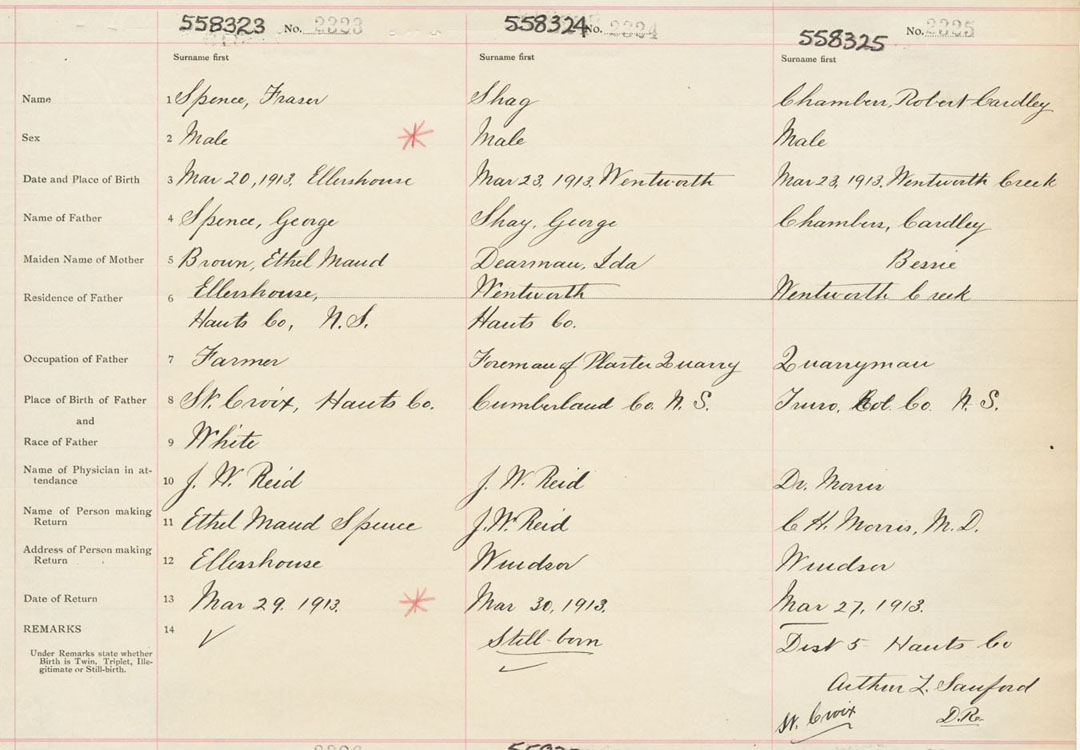 558323 No. 2223 558324 No. 2224 558325 No. 2225
Surname first Surname first Surname first
Name 1 Spence, Fraser Shag Chambers, Robert Cardley
Sex 2 Male Male Male
Date and Place of Birth 3 Mar 20, 1913, Ellershouse Mar 23, 1913, Wentworth Mar 23, 1913, Wentworth Creek
Name of Father 4 Spence, George Shay, George Chambers, Cardley
Maiden Name of Mother 5 Brown, Ethel Maud Dearman, Ida Bessie
Residence of Father 6 Ellershouse, Wentworth Wentworth Creek
Hants Co, N.S. Hants Co.
Occupation of Father 7 Farmer Foreman of Plaster Quarry Quarryman
Place of Birth of Father 8 St. Croix, Hants Co. Cumberland Co. N.S. Truro, Col. Co. N.S.
and
Race of Father 9 White
Name of Physician in at-
tendance 10 J. W. Reid J. W. Reid Dr. Morris
Name of Person making
Return 11 Ethel Maud Spence J. W. Reid C H. Morris, M.D.
Address of Person making
Return 12 Ellershouse Windsor Windsor
Date of Return 13 Mar 29, 1913. Mar 30, 1913. Mar 27, 1913.
REMARKS 14 Still-born Dist 5 Hants Co
Under Remarks state whether
Birth is Twin, Triplet, Ille-
gitimate or Still-birth.
Arthur L. Sanford
St. Croix D.R.